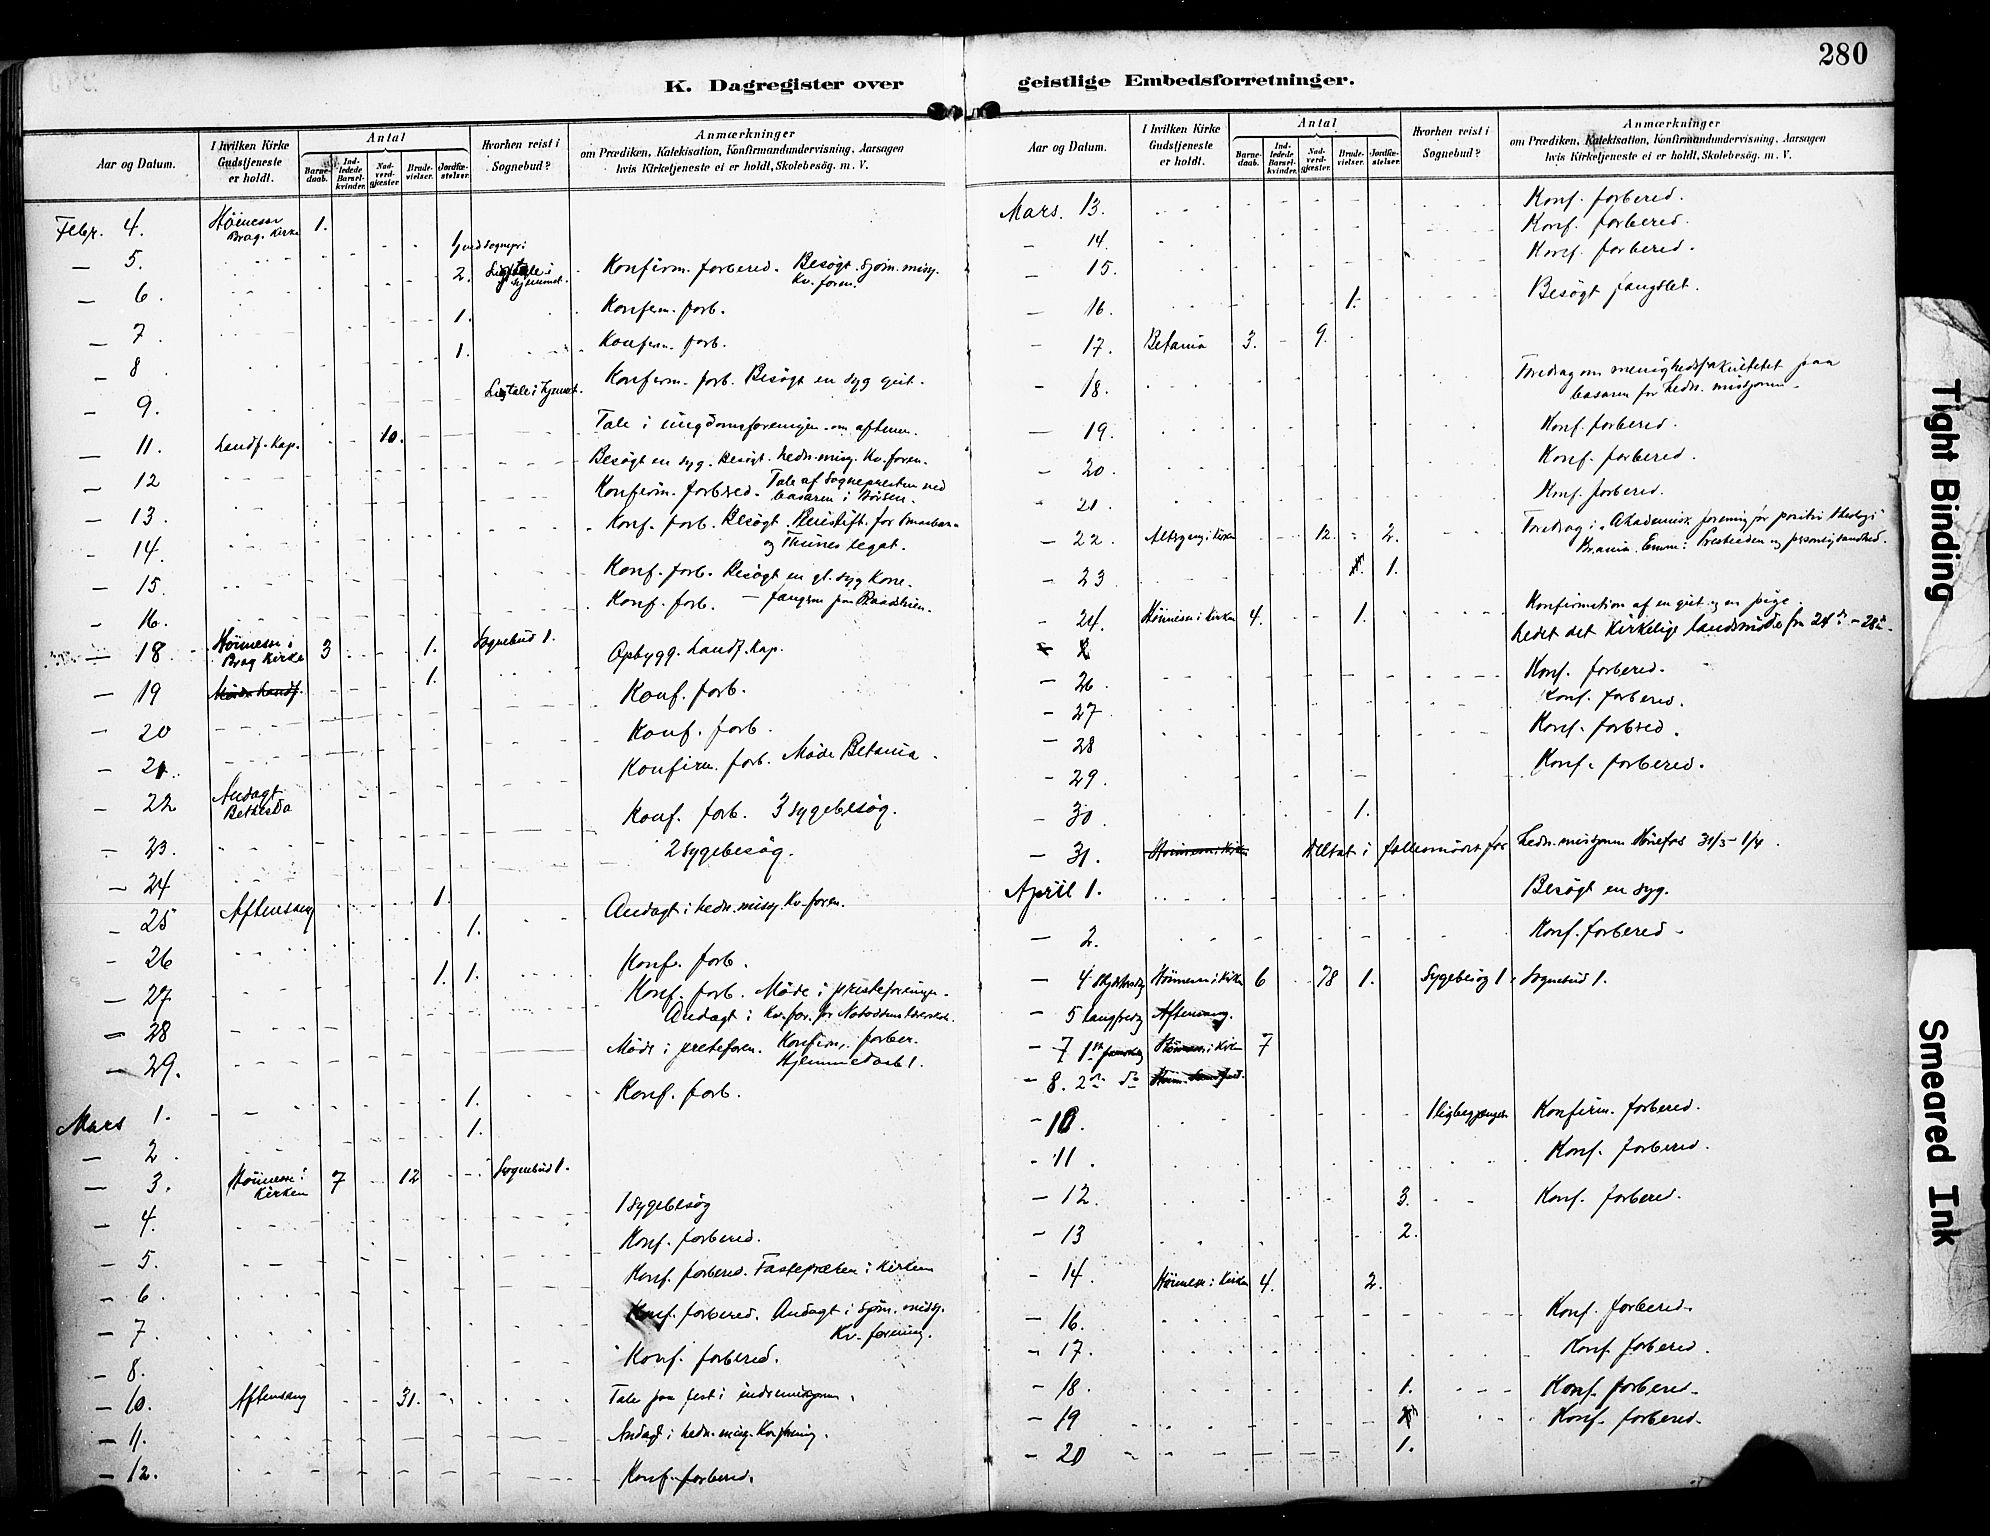 280
K. Dagregister over geistlige Embedsforretninger.
Aar og Datum.
I hvilken Kirke Gudstjeneste er holdt.
Antal
Barnedaab.
Indledede Barselkvinder.
Nadverdgjæster.
Brudevielser.
Jordfæstelser.
Hvorhen reist i Sognebud?
Anmærkninger
om Prædiken, Katekisation, Konfirmandundervisning, Aarsagen
hvis Kirketjeneste ei er holdt, Skolebesög. m. V.
Febr. 4. Höimesse Brag. Kirke 1.
— 5. 2. Konfirm. forbered. Besögt sjöm. missj. Kv. foren.
— 6. 1. Konfirm. forb.
— 7. 1. Konfirm. forb.
— 8. Ligtale i hjemmet. Konfirm. forb. Besögt en syg gut.
— 9.
— 11. Landf. Kap. 10. Tale i ungdomsforeningen om aftenen.
— 12 Besögt en syg. Besögt hedn. missj. Kv. foren.
— 13. Konfirm. forbred. Tale af Sognepresten ved basaren i Börsen.
— 14. Konf. forb. Besögt og Thunes legat.
— 15. Konf. forb. Besögt en gl. syg Kone.
— 16. Konf. forb.
— 18. Höimesse i Brag Kirke 3 1. Sognebud 1. Opbygg. Landf. Kap.
— 19 1. Konf. forb.
— 20 Konf. forb.
— 21. Konfirm. forb. Möde Betania.
— 22 Andagt Bethesda Konf. forb. 3 sygebesög.
— 23. 2 sygebesög.
— 24 1.
— 25 Aftensang 1. Andagt i hedn. missj. Kv. foren.
— 26 1. 1. Konf. forb.
— 27 Konf. forb. Möde i presteforeningen.
— 28 Andagt i Kv. for. for Notoddens
— 29. Möde i presteforen. Konfirm. forber. Hjemmedaab 1.
Mars 1. 1. Konf. forb.
— 2 1.
— 3. Höimesse i Kirken 7 12 Sognebud 1.
— 4. 1 Sygebesög
— 5. Konf. forbered.
— 6. Konf. forbered. Fastepræken i Kirken
— 7. Konf. forbered. Andagt i sjöm. missj. Kv. forening.
— 8. Konf. forbered.
— 10. Aftensang 31. Tale paa fest i indremissjonen.
— 11. Andagt i hedn. missj. Kv. forening.
— 12. Konf. forbered.
Aar og Datum.
I hvilken Kirke Gudstjeneste er holdt.
Antal
Barnedaab.
Indledede Barselkvinder.
Nadverdgjæster.
Brudevielser.
Jordfæstelser.
Hvorhen reist i Sognebud?
Anmærkninger
om Prædiken, Katekisation, Konfirmandundervisning, Aarsagen
hvis Kirketjeneste ei er holdt, Skolebesög. m. V.
Mars. 13. Konf. forbered.
— 14. Konf. forbered.
— 15. Konf. forbered.
— 16. 1. Besögt fængslet.
— 17. Betania 3. 9.
— 18. Foredrag om menighedsfakultetet paa basaren for hedn. missjonen.
— 19. Konf. forbered.
— 20. Konf. forbered.
— 21. Konf. forbered.
— 22. Altergang i Kirken 12. 2. Foredrag i "Akademisk forening for positiv theologi"
— 23 1.
— 24. Höimesse i Kirken 4. 1. Konfirmation af en gut og en pige.
Ledet det Kirkelige landsmöde fra 24de – 28de.
— 26. Konf. forbered.
— 27 Konf. forbered.
— 28 Konf. forbred.
— 29. Konf. forbered.
— 30. 1.
— 31. Höimesse i Kirken Deltat i fællesmödet for hedn. missjonen Hönefos 31/3 – 1/4.
April 1. Besögt en syg.
— 2. Konf. forbered.
— 4 Skjærtorsdag Höimesse i Kirken 6 78 1. Sygebesög 1. Sognebud 1.
— 5 Langfredag Aftensang.
— 7 1ste i Kirken 7
— 8. 2den do
— 10. 1 ligbegjængelse Konfirm. forbered.
— 11. Konf. forbered.
— 12. 3. Konf. forbered.
— 13 2.
— 14. Höimesse i Kirken 4. 2.
— 16. Konf. forbered.
— 17. Konf. forbered.
— 18. 1. Konf. forbered.
— 19 Konf. forbered.
— 20 1.
Tight Binding
Smeared Ink